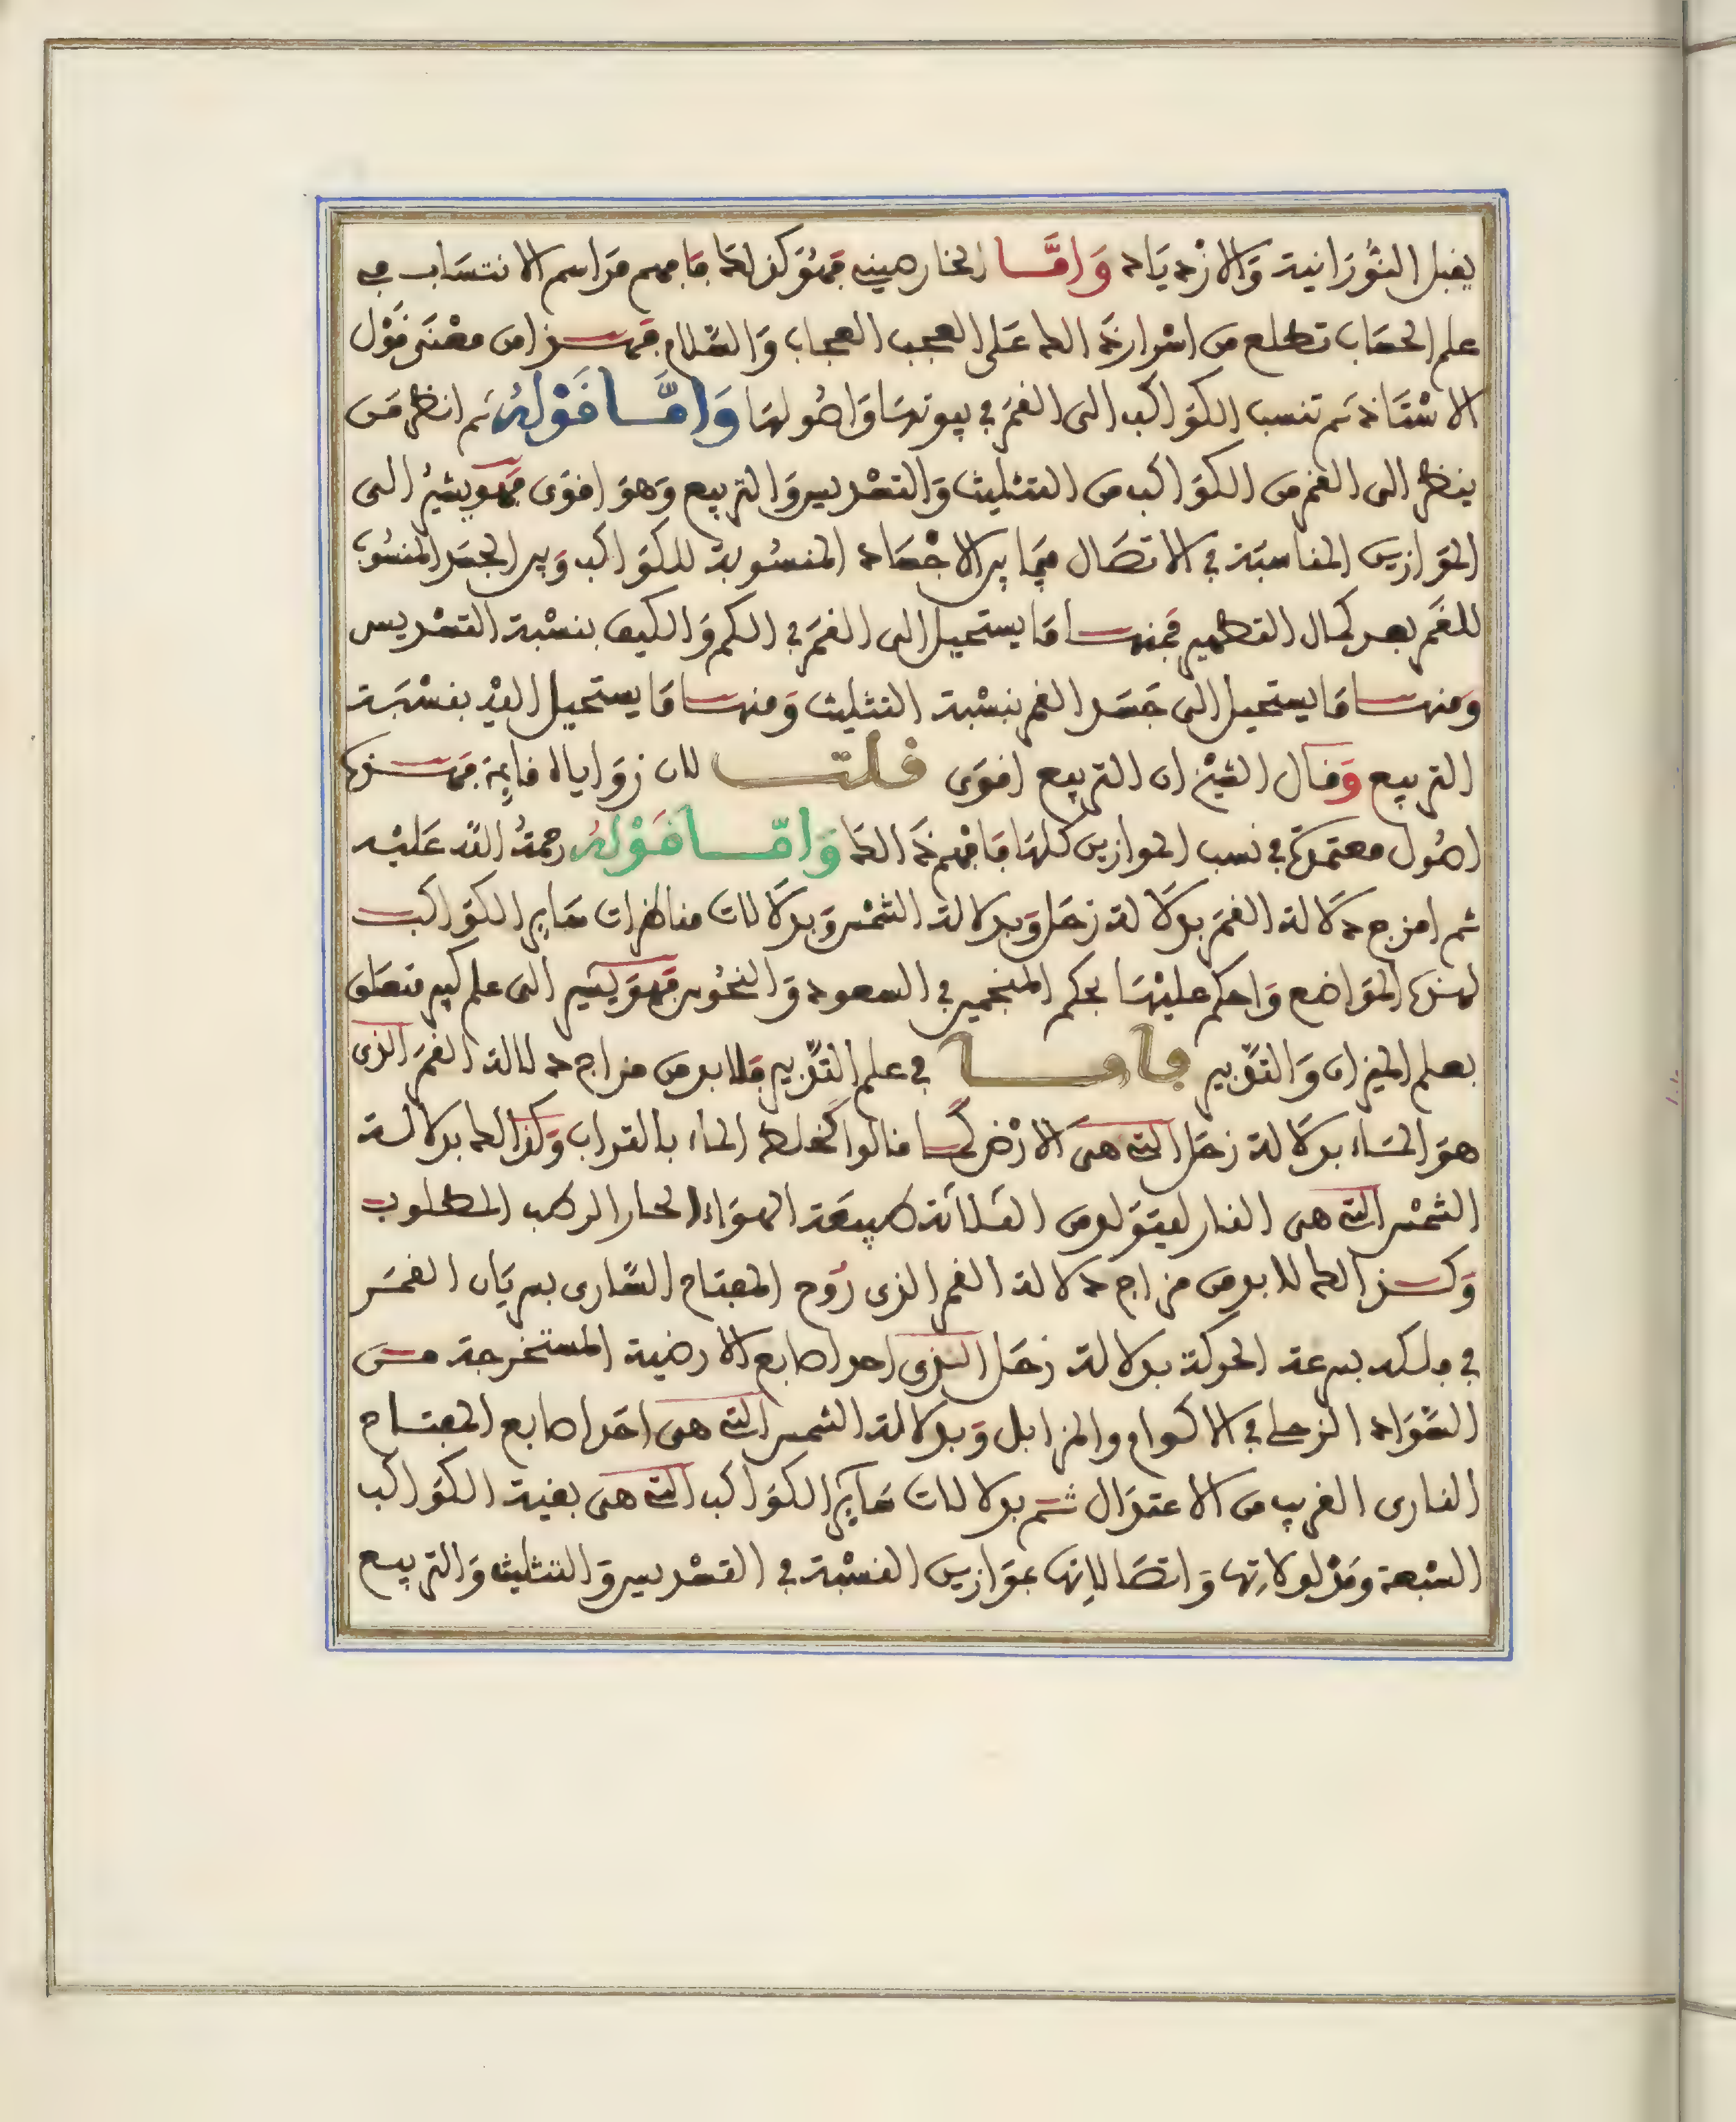 يقبل النورانية والازدياد واما الخارصيني فهو كذلك فافهم مراسم الانتساب في
علم الحساب تطلع من اسرار ذلك على العجب العجاب والسلام فهذا من معنى قول
الاستاذ ثم تنسب الكواكب الى القمر في بيوتها واصولها واما قوله ثم انظر من
ينظر الى القمر من الكواكب من التثليث والتسديس والتربيع وهو اقوى فهو يشير الى
الموازين المناسبة في الاتصال فيما بين الاجساد المنسوبة للكواكب وبين الجسد المنسوب
للقمر بعد كمال التطهير فمنها ما يستحيل الى القمر في الكم والكيف بنسبة التسديس
ومنها ما يستحيل الى جسد القمر بنسبة التثليث ومنها ما يستحيل اليه بنسبة
التربيع وقال الشيخ ان التربيع اقوى قلت لان زواياه قايمة فهذه
اصول معتمدة في نسب الموازين كلها فافهم ذلك واما قوله رحمة الله عليه
ثم امزج دلالة القمر بدلالة زحل وبدلالة الشمس وبدلالات مناظرات ساير الكواكب
لهذه المواضع واحكم عليها بحكم المنجمين في السعود والنحوس فهو يشير الى علم كبير متعلق
بعلم الميزان والتدبير فاما في علم التدبير فلا بد من مزاج دلالة القمر الذى
هو الماء بدلالة زحل التي هى الارض كما قالوا اخلط الماء بالتراب وكذلك بدلالة
الشمس التي هى النار ليتولد من الثلاثة طبيعة الهواء الحار الرطب المطلوب
وكذلك لا بد من مزاج دلالة القمر الذى روح المفتاح السارى بسريان القمر
في فلكه بسرعة الحركة بدلالة زحل الذى احد اصابع الارضية المستخرجة من
السواد الزحلى في الاكوام والمزابل وبدلالة الشمس التي هى احد اصابع المفتاح
النارى القريب من الاعتدال ثم بدلالات ساير الكواكب التي هى بقية الكواكب
السبعة ومدلولاتها واتصالاتها بموازين النسبة في التسديس والتثليث والتربيع